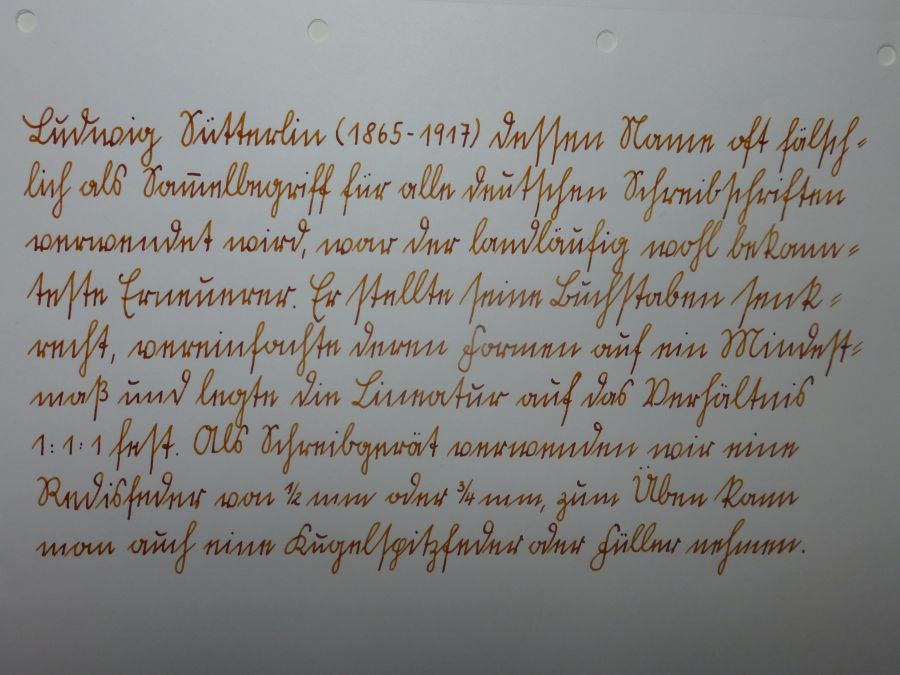 Ludwig Sütterlin (1865-1917) dessen Name oft fälsch-
lich als Sam̅elbegriff für alle deutschen Schreibschriften
verwendet wird, war der landläufig wohl bekann-
teste Erneuerer. Er stellte seine Buchstaben senk-
recht, vereinfachte deren Formen auf ein Mindest-
maß und legte die Lineatur auf das Verhältnis
1:1:1 fest. Als Schreibgerät verwenden wir eine
Redisfeder von ½ mm oder ¾ mm, zum Üben kann
man auch eine Kugelspitzfeder oder Füller nehmen.